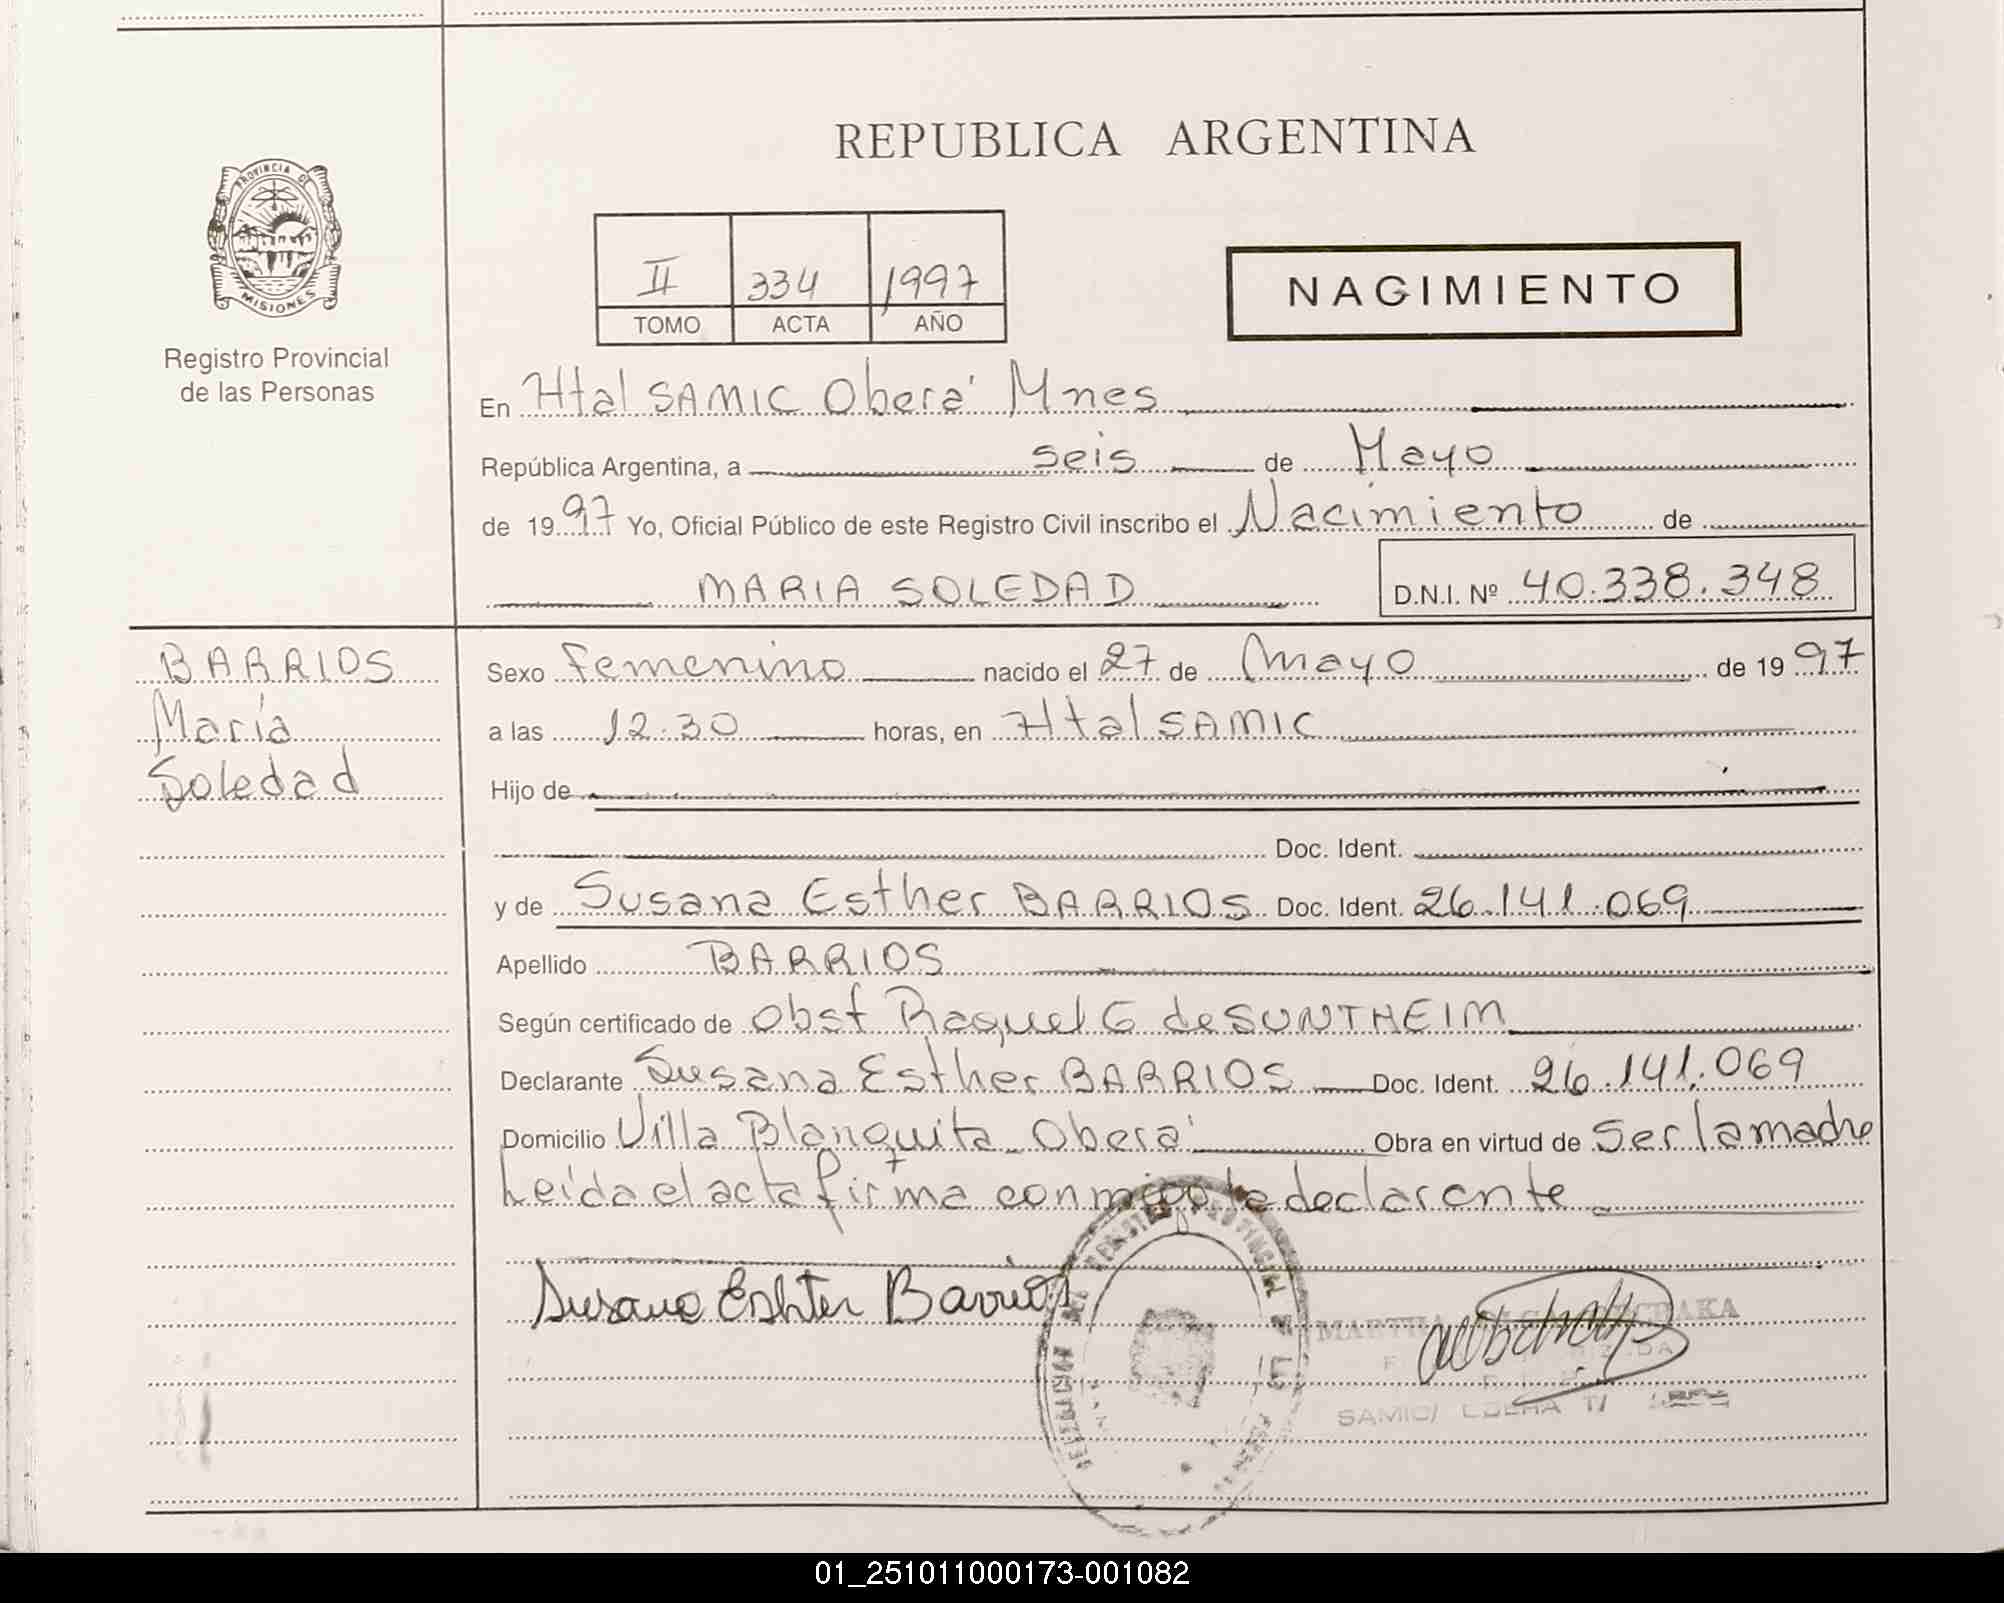 REPUBLICA ARGENTINA
PROVINCIA DE
MISIONES
Registro Provincial
de las Personas
II 334 1997
TOMO ACTA AÑO
NACIMIENTO
En Htal SAMIC Oberá Mnes
República Argentina, a seis de Mayo
de 1997 Yo, Oficial Público de este Registro Civil inscribo el Nacimiento de
MARIA SOLEDAD D.N.I. Nº 40.338.348
BARRIOS
María
Soledad
Sexo Femenino nacido el 27 de Mayo de 1997
a las 12.30 horas, en Htal SAMIC
Hijo de
Doc. Ident.
y de Susana Esther BARRIOS Doc. Ident. 26.141.069
Apellido BARRIOS
Según certificado de Obst Raquel G de SUNTHEIM
Declarante Susana Esther BARRIOS Doc. Ident. 26.141.069
Domicilio Villa Blanquita Oberá Obra en virtud de Ser la madre
Leída el acta firma conmigo la declarente
Susana Eshter Barrios
MARTHA
SAMIC/
01_251011000173-001082